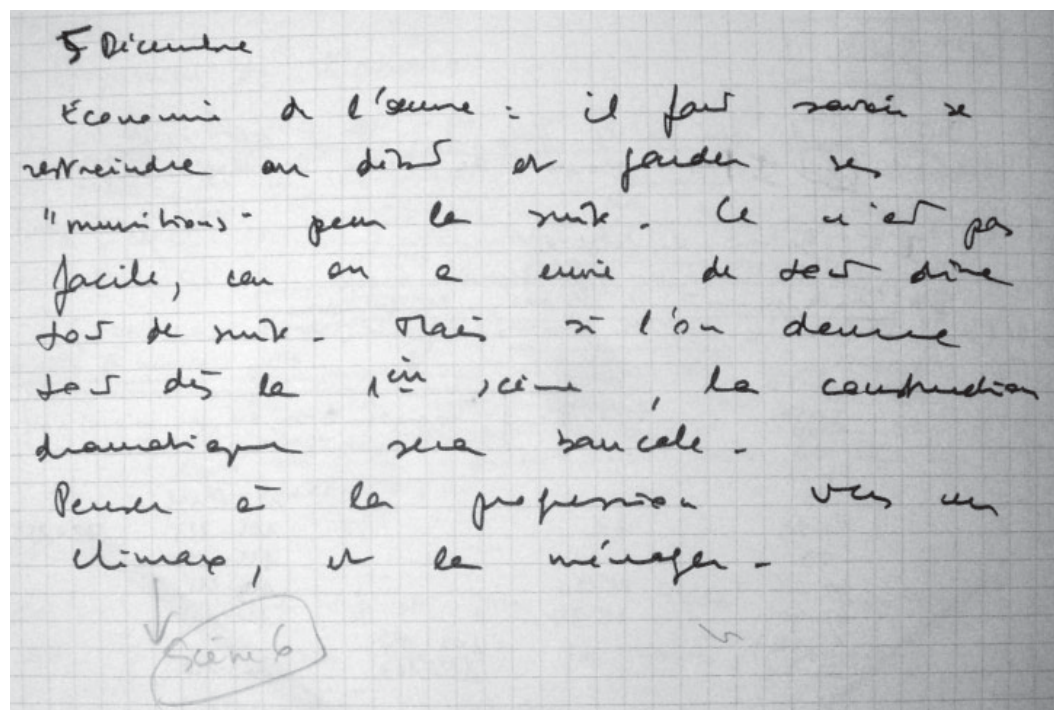 5 Décembre
Économie de l'œuvre : il faut savoir se
restreindre au début et garder ses
"munitions" pour la suite. Ce n'est pas
facile, car on a envie de tout dire
tout de suite. Mais si l'on donne
tout dès la 1ère scène, la construction
dramatique sera bancale.
Penser à la progression vers un
climax, et la ménager.
Scène 6